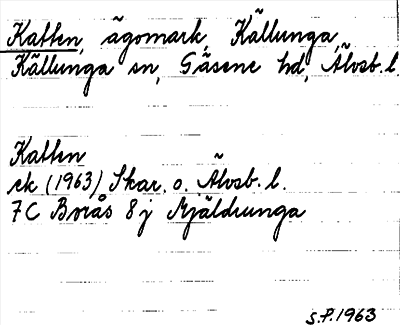 Katten, ägomark, Källunga,
Källunga sn, Gäsene hd, Älvsb. l.
Katten
ek (1963) Skar. o. Älvsb. l.
7C Borås 8j Mjäldrunga
S.F. 1963